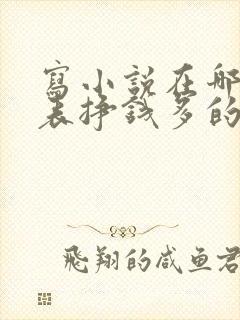 寫小説在哪
表掙錢多的
飛翔的咸鱼君